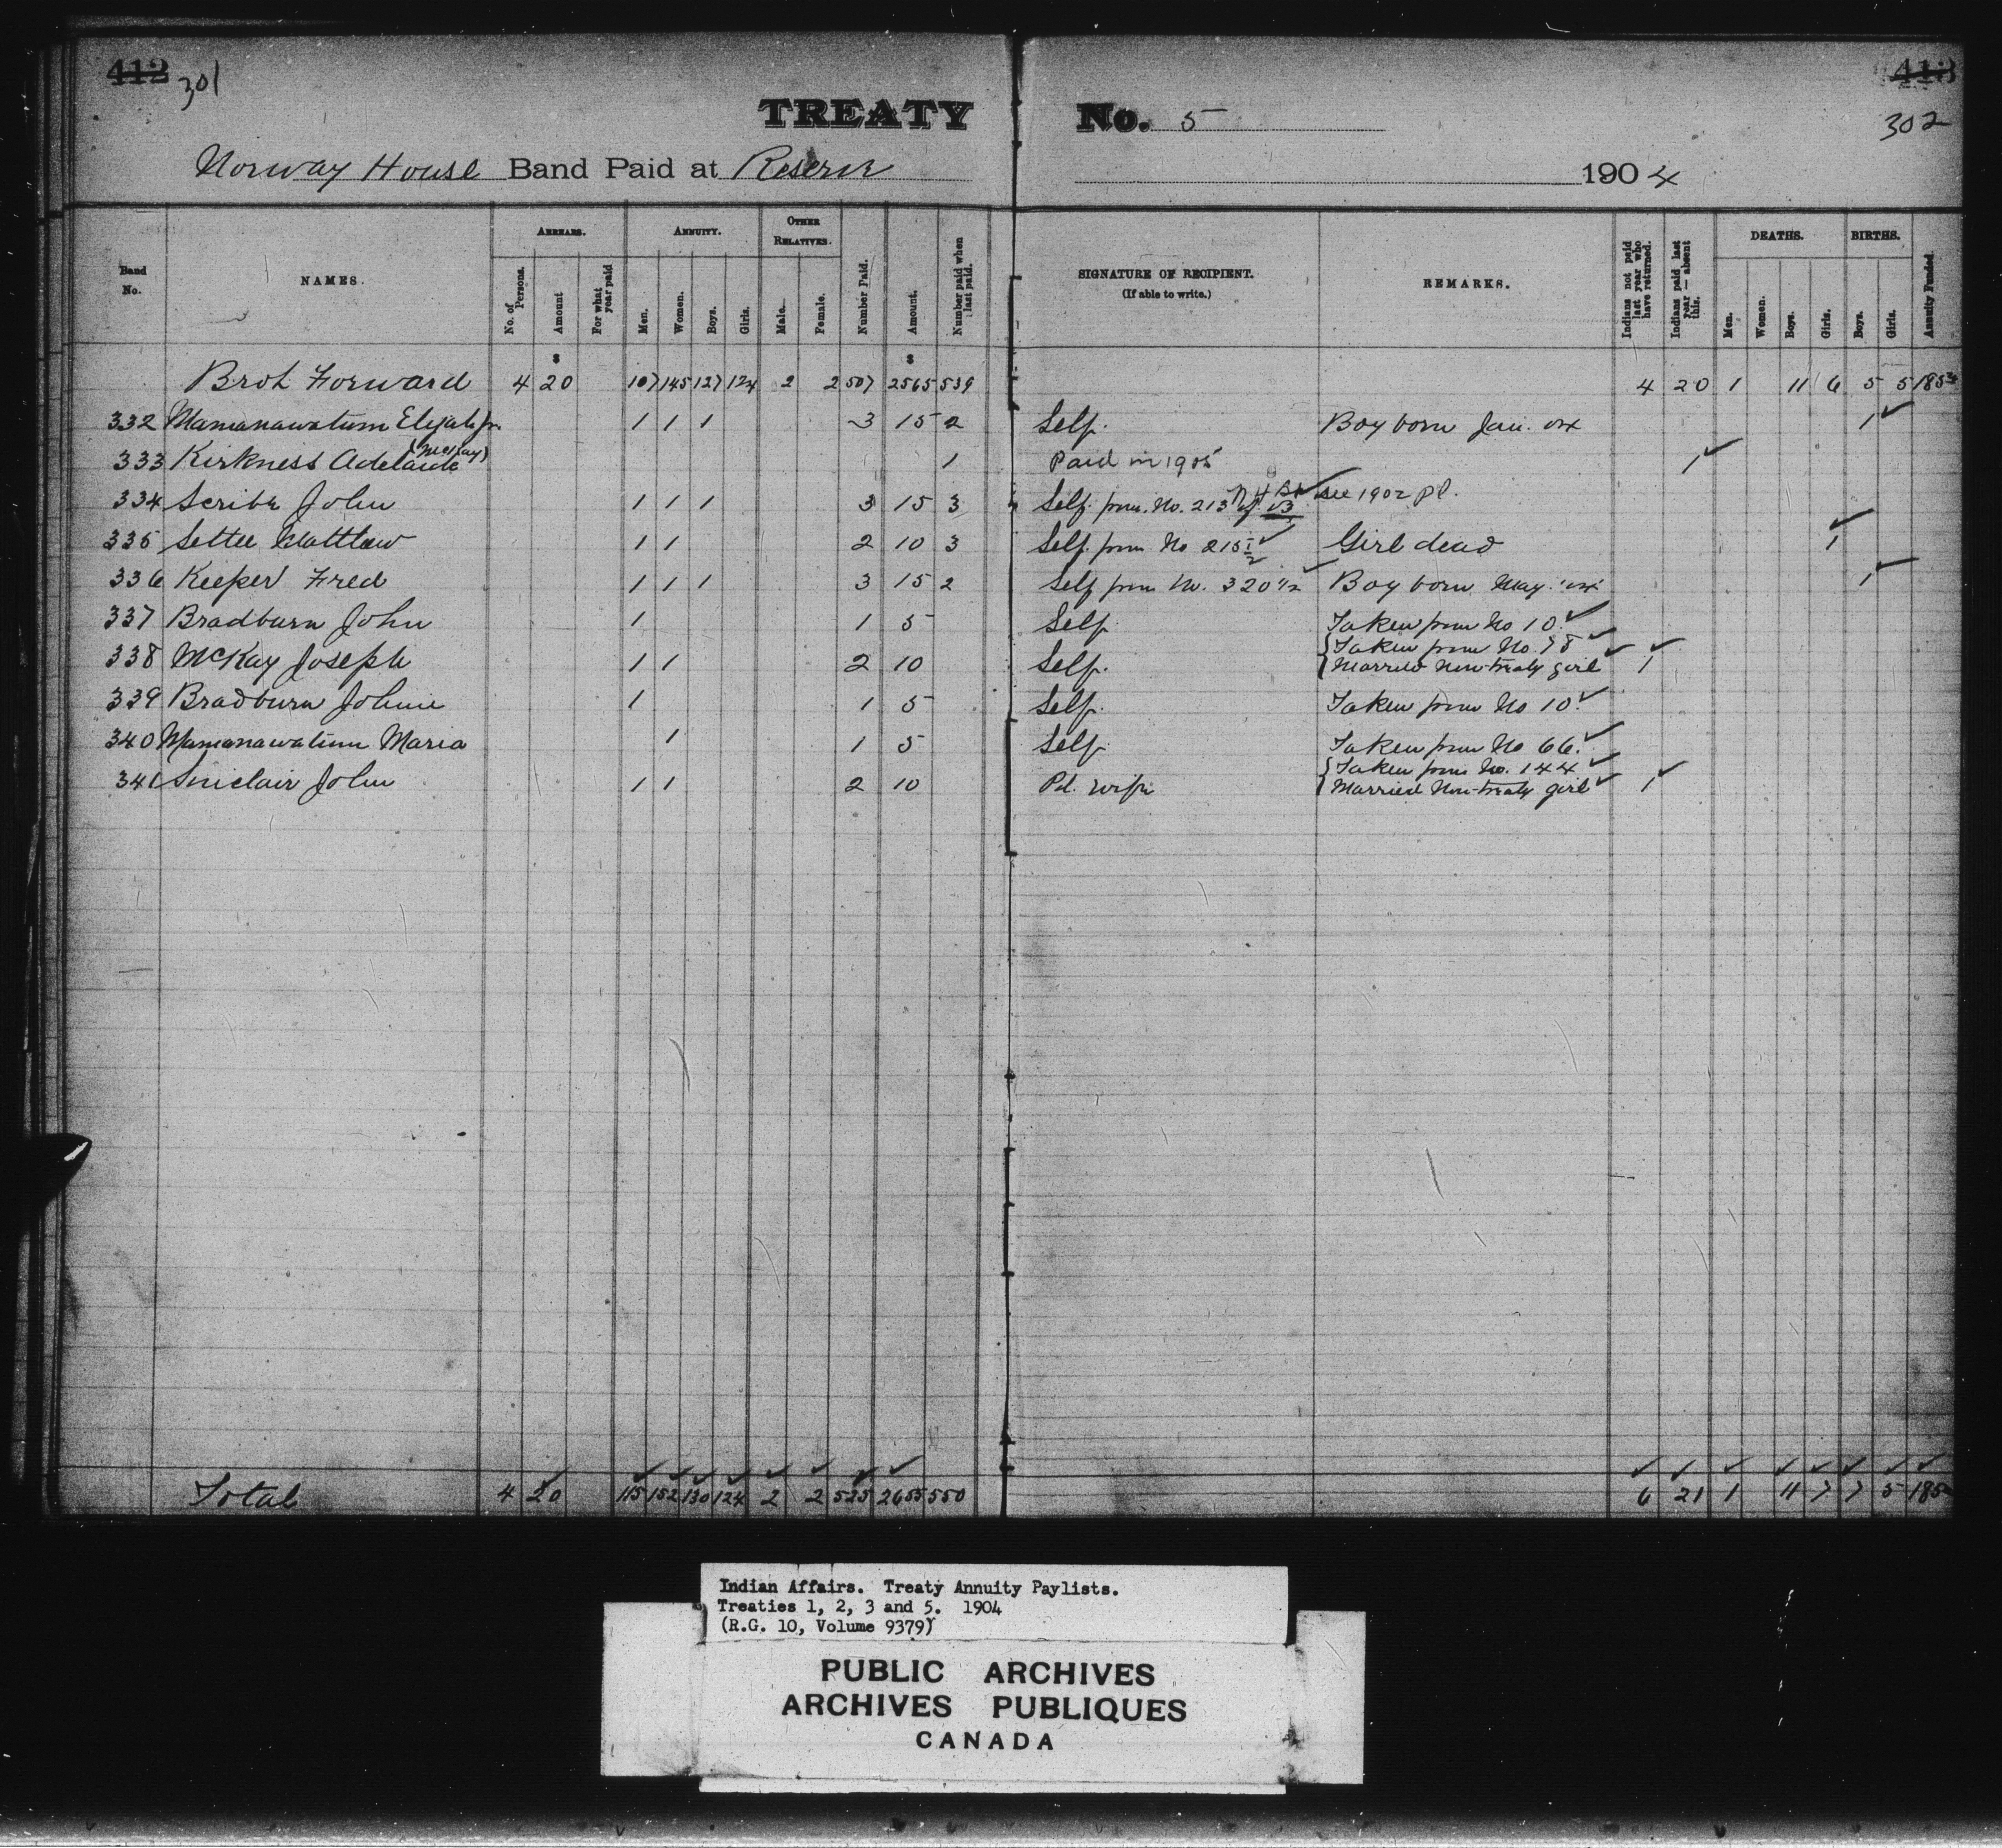 412 301
413
302
TREATY No. 5
Norway House Band Paid at Reserve 1904
Band No.
NAMES.
ARREARS.
No. of Persons.
Amount
For what year paid
ANNUITY.
Men.
Women.
Boys.
Girls.
OTHER RELATIVES.
Male.
Female.
Number Paid.
Amount.
Number paid when last paid.
SIGNATURE OF RECIPIENT.
(If able to write.)
REMARKS.
Indians not paid last year who have returned.
Indians paid last year — absent this.
DEATHS.
Men.
Women.
Boys.
Girls.
BIRTHS.
Boys.
Girls.
Annuity Funded.
$ $
Brot Forward 4 20 107 145 127 124 2 2 507 2565 539 4 20 1 11 6 5 5 185
332 Mamanawatum Elijah jr. 1 1 1 3 15 2 Self. Boy born Jan. '04 1 ✓
333 Kirkness Adelaide (McKay) 1 Paid in 1905 1 ✓
334 Scribe John 1 1 1 3 15 3 Self. from No. 213 ✓ see 1902 pl.
335 Settee Matthew 1 1 2 10 3 Self. from No 215 1/2 ✓ Girl dead 1 ✓
336 Keeper Fred 1 1 1 3 15 2 Self from No. 320 1/2 ✓ Boy born May '04 1 ✓
337 Bradburn John 1 1 5 Self. Taken from No 10. ✓
338 McKay Joseph 1 1 2 10 Self. {Taken from No. 78 ✓
{Married Non-treaty girl ✓ 1 ✓
339 Bradburn Johnie 1 1 5 Self. Taken from No 10. ✓
340 Mamanawatum Maria 1 1 5 Self. Taken from No 66. ✓
341 Sinclair John 1 1 2 10 Pd. wife {Taken from No. 144 ✓
{Married Non-treaty girl ✓ 1 ✓
Total 4 20 115 152 130 124 2 2 525 2655 550 6 21 1 11 7 7 5 185
Indian Affairs. Treaty Annuity Paylists.
Treaties 1, 2, 3 and 5. 1904
(R.G. 10, Volume 9379)
PUBLIC ARCHIVES
ARCHIVES PUBLIQUES
CANADA